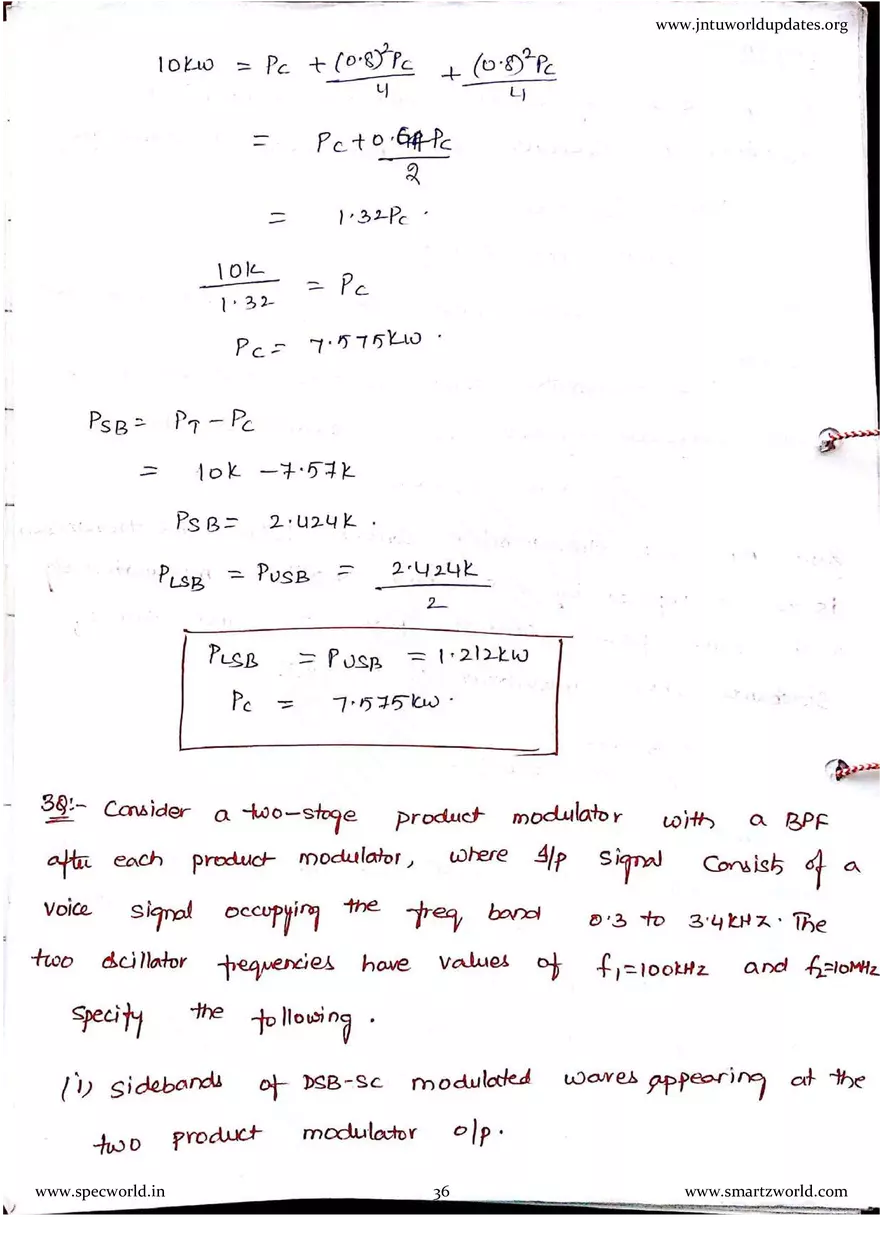 www.jntuworldupdates.org
10KW = Pc + (0.8)²Pc/4 + (0.8)²Pc/4
= Pc + 0.64Pc/2
= 1.32Pc .
10k/1.32 = Pc
Pc = 7.575KW .
PSB = PT - Pc
= 10K - 7.57K
PSB = 2.424K .
PLSB = PUSB = 2.424K/2
PLSB = PUSB = 1.212KW
Pc = 7.575KW .
3Q:- Consider a two-stage product modulator with a BPF
after each product modulator, where I/p signal consists of a
voice signal occupying the freq band 0.3 to 3.4KHZ. The
two oscillator frequencies have values of f1=100KHZ and f2=10MHZ
specify the following .
(i) sidebands of DSB-SC modulated waves appearing at the
two product modulator o/p.
www.specworld.in 36 www.smartzworld.com